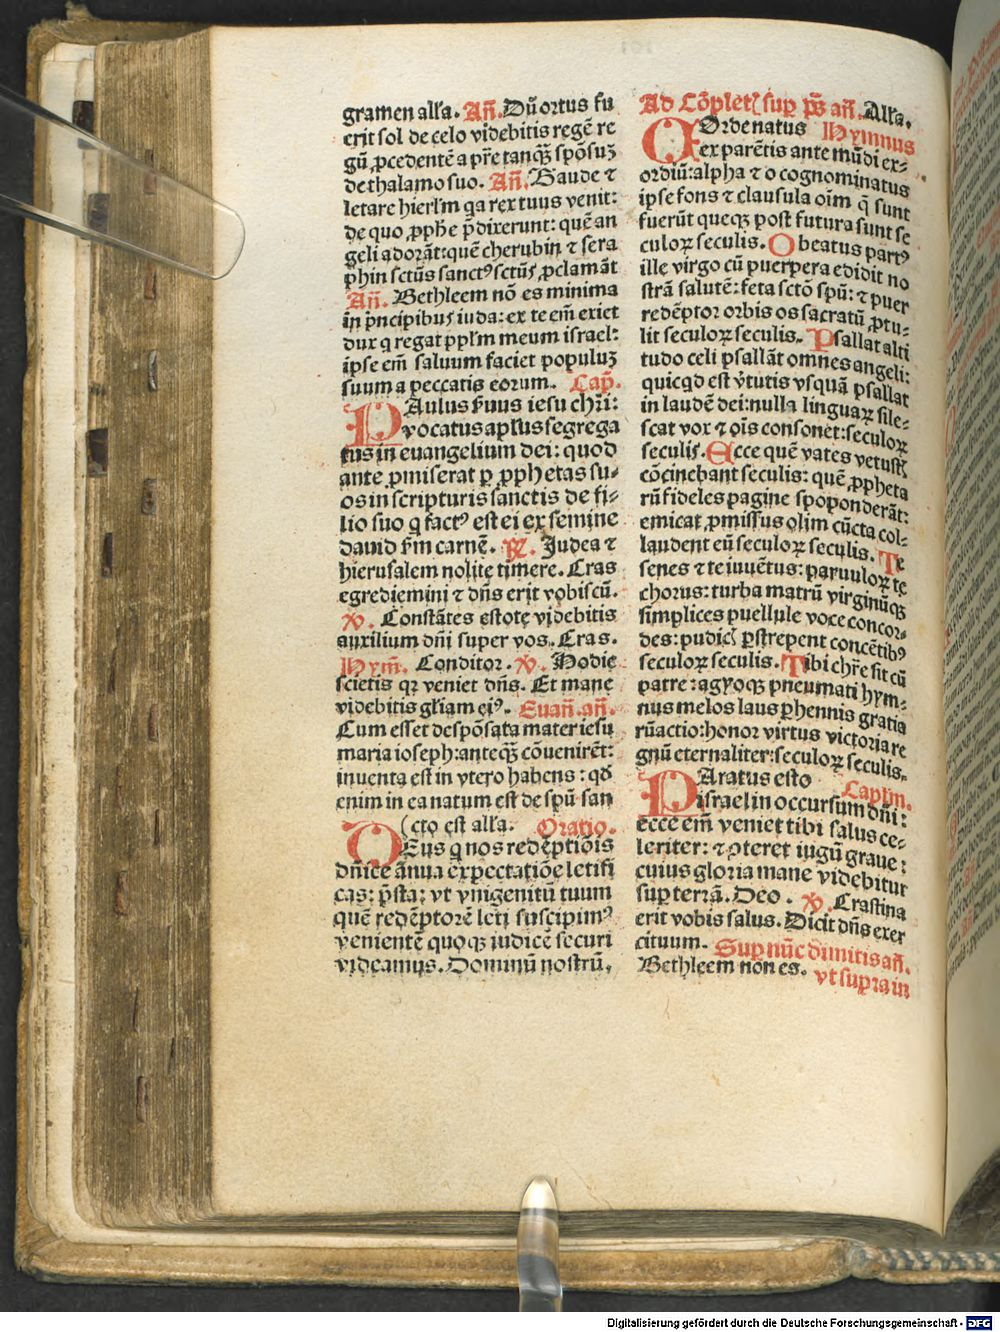 gramen all'a. Añ. Dū ortus fu
erit sol de celo videbitis regē re
gū ꝓcedentē a pr̄e tanqꝫ̄ spōsuꝫ
de thalamo suo. Añ. Gaude ⁊
letare hierl'm qa rex tuus venit:
de quo ꝓph̄e p̄dixerunt: quē an
geli adorāt: quē cherubin ⁊ sera
phin sctūs sanctꝰ sctūs ꝓclamāt
Añ. Bethleem nō es minima
in p̄ncipibus iuda: ex te em̄ exiet
dux q regat ppl'm meum israel:
ipse em̄ saluum faciet populuꝫ
suum a peccatis eorum. Cap̄.
PAulus ẜuus iesu chr̄i:
vocatus apl'us segrega
tus in euangelium dei: quod
ante ꝓmiserat ꝑ ꝓphetas su-
os in scripturis sanctis de fi-
lio suo q factꝰ est ei ex semine
dauid ẜm carnē. ℟. Judea ⁊
hierusalem nolite timere. Cras
egrediemini ⁊ dn̄s erit vobiscū.
℣. Constātes estote videbitis
auxilium dn̄i super vos. Cras.
Hym̄. Conditor. ℣. Hodie
scietis qꝛ veniet dn̄s. Et mane
videbitis gl'iam eiꝰ. Euañ. añ.
Cum esset despōsata mater iesu
maria ioseph: anteqꝫ̄ cōuenirēt:
inuenta est in vtero habens: qd̄
enim in ea natum est de spū san
(cto est all'a. Oratio.
DEus q nos redēptiōis
dn̄ice ānua expectatiōe letifi
cas: p̄sta: vt vnigenitū tuum
quē redēptorē leti suscipimꝰ
venientē quoqꝫ iudicē securi
videamus. Dominū nostrū.
Ad Cōplet' sup p̄s añ. All'a.
COrde natus Hymnus
ex parētis ante mūdi ex-
ordiū: alpha ⁊ o cognominatus
ipse fons ⁊ clausula oīm q̄ sunt
fuerūt queqꝫ post futura sunt se
culoꝝ seculis. O beatus partꝰ
ille virgo cū puerpera edidit no
strā salutē: feta sctō spū: ⁊ puer
redēptor orbis os sacratū ꝓtu-
lit seculoꝝ seculis. Psallat alti
tudo celi psallāt omnes angeli:
quicqd est v̓tutis vsquā psallat
in laudē dei: nulla linguaꝝ sile-
scat vox ⁊ oīs consonet: seculoꝝ
seculis. Ecce quē vates vetust'
cōcinebant seculis: quē ꝓpheta
rū fideles pagine spoponderāt:
emicat ꝓmissus olim cūcta col-
laudent eū seculoꝝ seculis. Te
senes ⁊ te iuuētus: paruuloꝝ te
chorus: turba matrū virginūqꝫ
simplices puellule voce concor-
des: pudic' ꝑstrepent concētibꝰ
seculoꝝ seculis. Tibi chr̄e sit cū
patre: agyoqꝫ pneumati hym-
nus melos laus perhennis gratia
rūactio: honor virtus victoria re
gnū eternaliter: seculoꝝ seculis.
PAratus esto Capl'm.
israel in occursum dn̄i:
ecce em̄ veniet tibi salus ce-
leriter: ⁊ ꝯteret iugū graue:
cuius gloria mane videbitur
sup terrā. Deo. ℣. Crastina
erit vobis salus. Dicit dn̄s exer
cituum. Sup nūc dimitis añ.
Bethleem non es. vt supra in
Digitalisierung gefördert durch die Deutsche Forschungsgemeinschaft - DFG